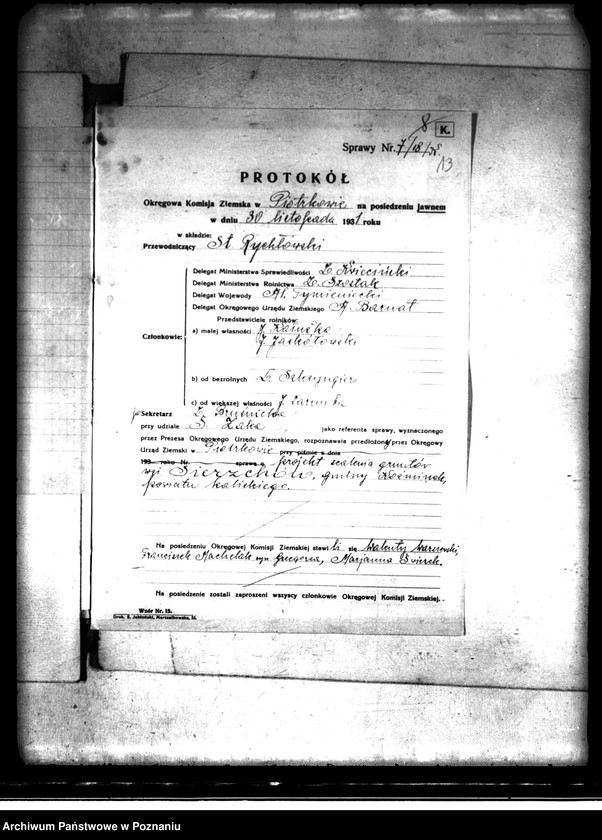 8
K.
Sprawy Nr. 7/18/
13
PROTOKÓŁ
Okręgowa Komisja Ziemska w Piotrkowie na posiedzeniu jawnem
w dniu 30 listopada 1931 roku
w składzie:
Przewodniczący St Rychłowski
Delegat Ministerstwa Sprawiedliwości Z. Kwieciński
Delegat Ministerstwa Rolnictwa Z. Szostak
Delegat Wojewody Al. Tymieniecki
Delegat Okręgowego Urzędu Ziemskiego A. Barnat
Przedstawiciele rolników:
a) małej własności J.
Członkowie:
J.
b) od bezrolnych
c) od większej własności J. Zaremba
Sekretarz
przy udziale S. Żaka, jako referenta sprawy, wyznaczonego
przez Prezesa Okręgowego Urzędu Ziemskiego, rozpoznawała przedłożony przez Okręgowy
Urząd Ziemski w Piotrkowie przy piśmie z dnia
193 roku Nr. sprawę o projekt scalenia gruntów
wsi Sierzchów, gminy Koźminek,
powiatu kaliskiego.
Na posiedzeniu Okręgowej Komisji Ziemskiej stawili się Walenty
Franciszek Machelak syn Grzegorza, Marjanna Świerek.
Na posiedzenie zostali zaproszeni wszyscy członkowie Okręgowej Komisji Ziemskiej.
Wzór Nr. 15.
Druk. S. Jabłoński, Marszałkowska,
Archiwum Państwowe w Poznaniu